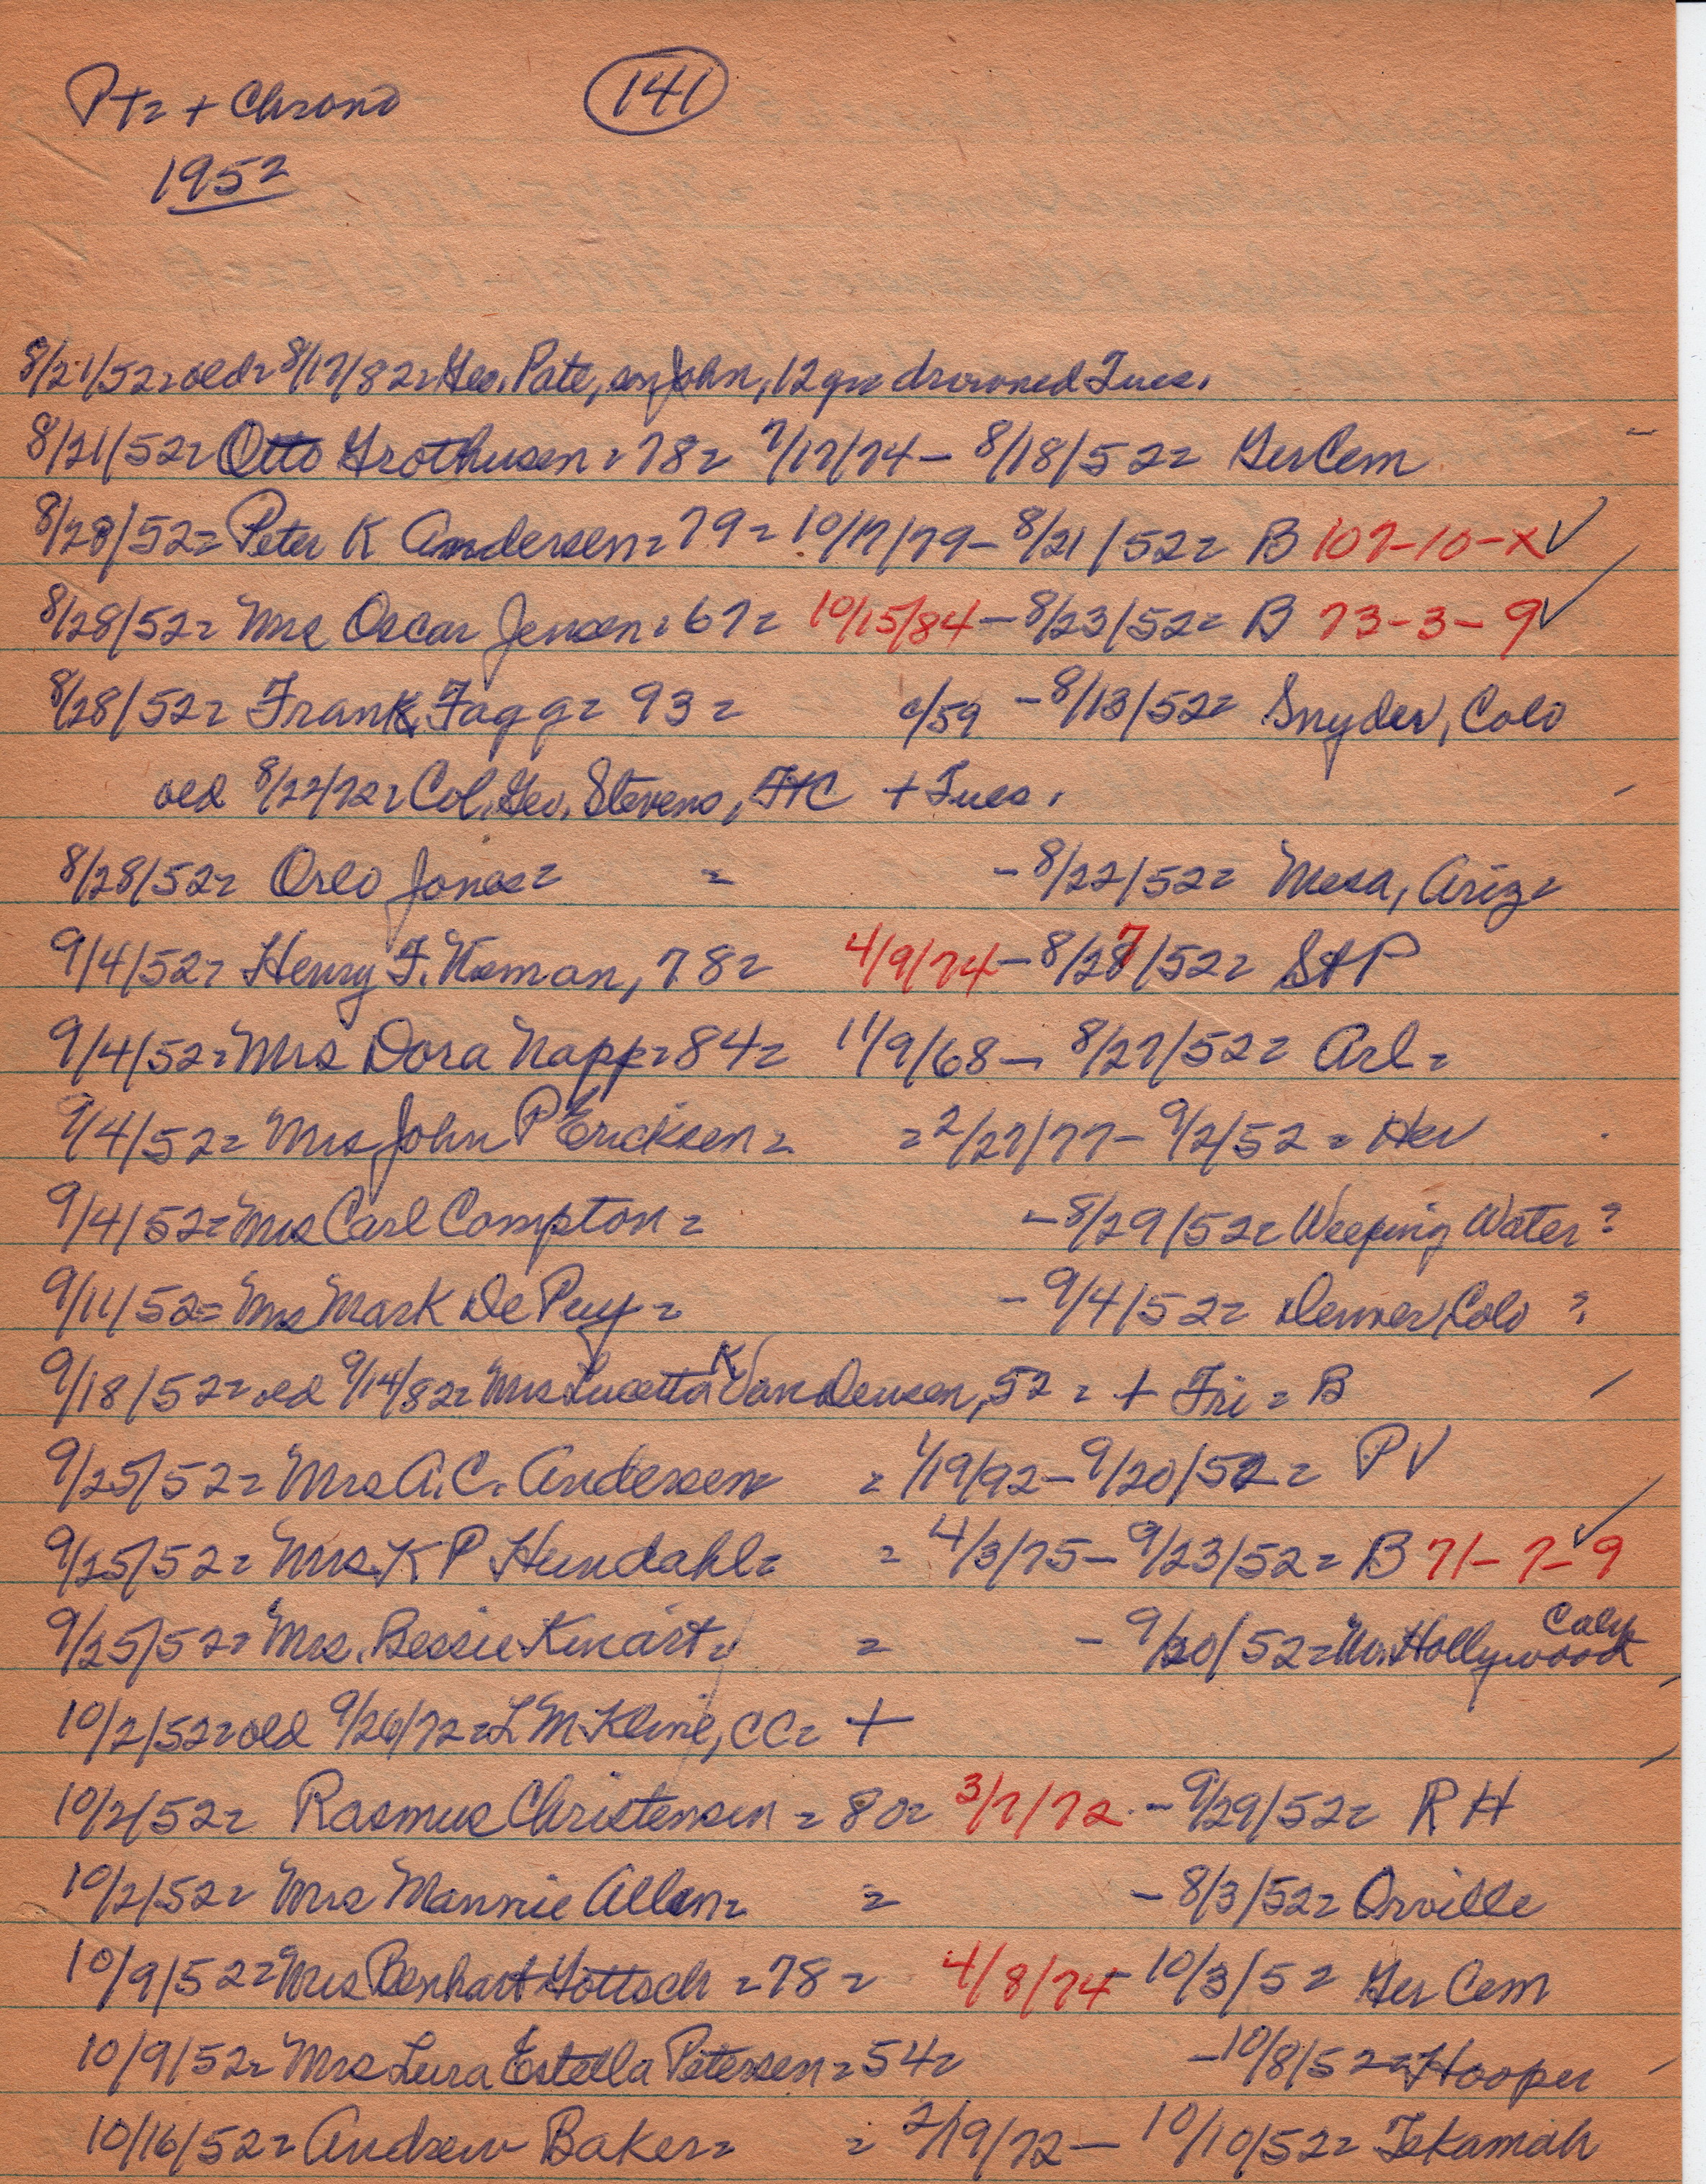 Ptr + Chrono 141
1952
8/21/52= old= 8/17/82= Geo. Pate, son John, 12 yrs drowned Tues.
8/21/52= Otto Grothusen= 78= 7/17/74 - 8/18/52= Ger Cem
8/28/52= Peter K Andersen= 79= 10/17/79 - 8/21/52= B 107-10-X ✓
8/28/52= Mrs Oscar Jensen= 67= 10/15/84 - 8/23/52= B 73-3-9 ✓
8/28/52= Frank Fagg= 93= c/59 - 8/13/52= Snyder, Colo
old 8/22/72= Col. Geo. Stevens, FtC + Tues.
8/28/52= Orlo Jones= = - 8/22/52= Mesa, Ariz=
9/4/52= Henry F. Neman, 78= 4/9/74 - 8/27/52= StP
9/4/52= Mrs Dora Napp= 84= 11/9/68 - 8/27/52= Arl=
9/4/52= Mrs John P Ericksen= = 2/27/77 - 9/2/52= Her
9/4/52= Mrs Carl Compton= - 8/29/52= Weeping Water ?
9/11/52= Mrs Mark De Puy= - 9/4/52= Denver, Colo ?
9/18/52= old 9/14/82= Mrs Lucetta K Van Deusen, 52= + Fri= B
9/25/52= Mrs A.C. Andersen = 1/19/92 - 9/20/52= PV
9/25/52= Mrs. K P Hundahl= = 4/3/75 - 9/23/52= B 71-7-9 ✓
9/25/52= Mrs. Bessie Kinart= = - 9/20/52= No. Hollywood Calif
10/2/52= old 9/26/72= L M Kline, CC= +
10/2/52= Rasmus Christensen = 80= 3/7/72 - 9/29/52= RH
10/2/52= Mrs Mannie Allen= = - 8/3/52= Orville
10/9/52= Mrs Benhart Gottsch = 78= 4/8/74 - 10/3/52 Ger Cem
10/9/52= Mrs Lura Estella Petersen= 54= - 10/8/52= Hooper
10/16/52= Andrew Baker= = 2/19/72 - 10/10/52= Tekamah